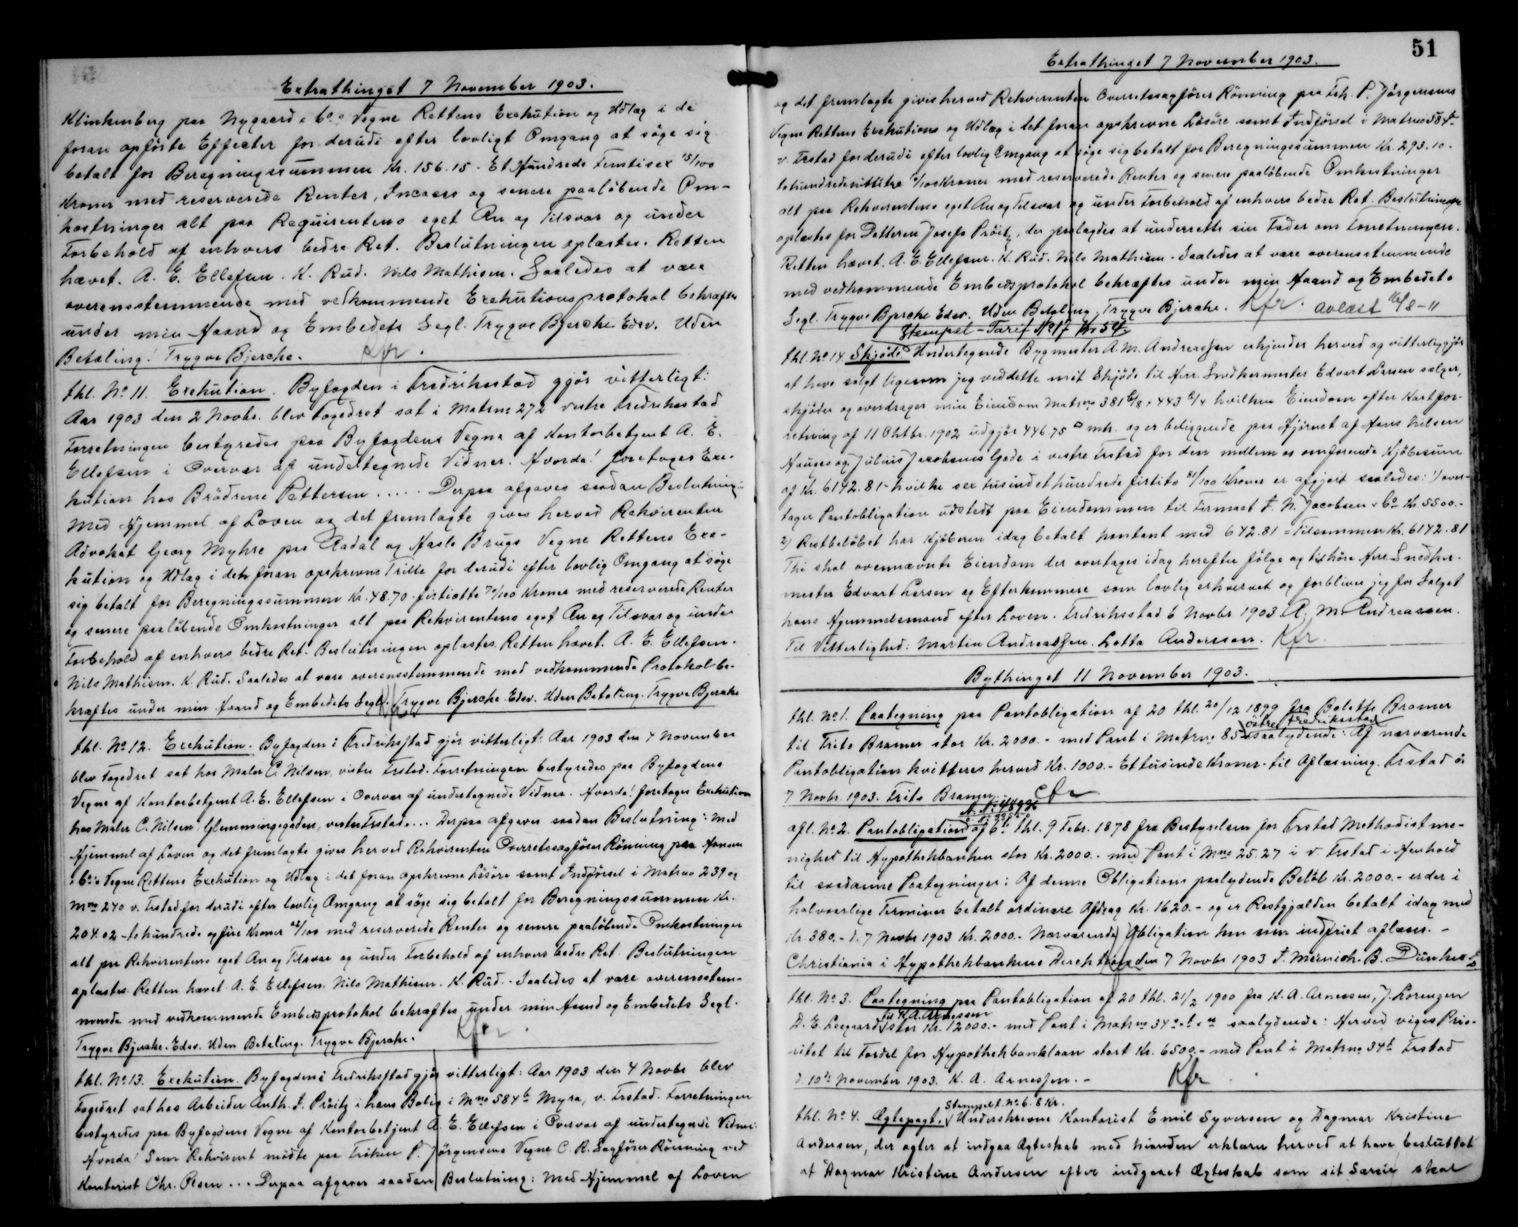 Extrathinget 7 November 1903.
Klinkenberg paa Nygaard & Co.s Vegne Rettens Exekution og Udlag i de
foran opförte Effecter for derudi efter lovligt Omgang at söge sig
betalt for Beregningssummen Kr. 156.15. Et Hundrede Femtisex 15/100
Kroner med reserverede Renter, Incasso og senere paalöbende Om-
kostninger alt paa Requirentens eget An og Tilsvar og under
Forbehold af enhvers bedre Ret. Beslutningen oplæstes. Retten
hævet. A. E. Ellefsen. K. Rud. Nils Mathisen. Saaledes at være
overensstemmende med vedkommende Exekutionsprotokol bekræftes
under min Haand og Embedets Segl. Trygve Bjerche Edsv. Uden
Betaling. Trygve Bjerche. Kfr.
thl. No 11. Exekution. Byfogden i Fredrikstad gjör vitterligt:
Aar 1903 den 2 Novbr. blev Fogedret sat i Matrno 272 vestre Fredrikstad
Forretningen bestyredes paa Byfogdens Vegne af Kontorbetjent A. E.
Ellefsen i Overvær af undertegnede Vidner. Hvorda! foretoges Exe-
kution hos Brödrene Pettersen ..... Derpaa afgaves saadan Beslutning:
Med Hjemmel af Loven og det fremlagte gives herved Rekvirenten
Advokat Georg Myhre paa Aadal og Hasle Brugs Vegne Rettens Exe-
kution og Udlag i den foran opskrevne Trille for derudi efter lovlig Omgang at söge
sig betalt for Beregningssummen Kr. 48.70 firtiotte 70/100 Kroner med reserverede Renter
og senere paalöbende Omkostninger alt paa Rekvirentens eget An og Tilsvar og under
Forbehold af enhvers bedre Ret. Beslutningen oplæstes Retten hævet. A. E. Ellefsen.
Nils Mathisen. K. Rud. Saaledes at være overensstemmende med vedkommende Protokol be-
kræftes under min Haand og Embedets Segl. Trygve Bjerche Edsv. Uden Betaling. Trygve Bjerche
thl. No 12. Exekution. Byfogden i Fredrikstad gjör vitterligt: Aar 1903 den 4 November
blev Fogedret sat hos Maler C. Nilsen, vestre Frstad. Forretningen bestyredes paa Byfogdens
Vegne af Kontorbetjent A. E. Ellefsen i Overvær af undertegnede Vidner. Hvorda! foretoges Exekution
hos Maler C. Nilsen Glemmingegaden, vestre Frstad.... Derpaa afgaves saadan Beslutning: Med
Hjemmel af Loven og det fremlagte gives herved Rekvirenten Overretssagförer Rönning paa Hansen
& Co.s Vegne Rettens Exekution og Udlag i det foran opskrevne Lösöre samt Indförsel i Matrno 239 og
Mno 240 v. Frstad for derudi efter lovlig Omgang at söge sig betalt for Beregningssummen Kr.
204.02 – tohundrede og fire Kroner 02/100 med reserverede Renter og senere paalöbende Omkostninger
alt paa Rekvirentens eget An og Tilsvar og under Forbehold af enhvers bedre Ret. Beslutningen
oplæstes. Retten hævet. A. E. Ellefsen. Nils Mathisen. K. Rud. Saaledes at være overensstem-
mende med vedkommende Embedsprotokol bekræftes under min Haand og Embedets Segl.
Trygve Bjerche. Edsv. Uden Betaling. Trygve Bjerche. Kfr.
thl. No 13. Exekution. Byfogden i Fredrikstad gjör vitterligt: Aar 1903 den 4 Novbr blev
Fogedret sat hos Arbeider Anth. J. Pröitz i hans Bolig i Mno 584b Myra, v. Frstad. Forretningen
bestyredes paa Byfogdens Vegne af Kontorbetjent A. E. Ellefsen i Overvær af undertegnede Vidner:
Hvorda! Som Rekvirent mödte paa Fröken P. Jörgensens Vegne O. R. Sagförer Rönning ved
Kontorist Chr. Olsen ... Derpaa afgaves saadan Beslutning: Med Hjemmel af Loven
51
Extrathinget 7 November 1903.
og det fremlagte gives herved Rekvirenten Overretssagförer Rönning paa Frk. P. Jörgensens
Vegne Rettens Exekutions og Udlag i det foran opskrevne Lösöre samt Indförsel i Matrno 584b
v. Frstad for derudi efter lovlig Omgang at söge sig betalt for Beregningssummen Kr. 293.10.
tohundredenittitre 10/100 Kroner med reserverede Renter og senere paalöbende Omkostninger
alt paa Rekvirentens eget An og Tilsvar og under Forbehold af enhvers bedre Ret. Beslutningen
oplæstes for Datteren Josefa Pröitz, der paalagdes at underrette sin Fader om Forretningen.
Retten hævet. A. E. Ellefsen. K. Rud. Nils Mathisen. Saaledes at være overensstemmende
med vedkommende Embedsprotokol bekræftes under min Haand og Embedets
Segl. Trygve Bjerche Edsv. Uden Betaling, Trygve Bjerche. Kfr. avlæst 16/8-11
Stempel-Tarif No 17 Kr. 54.
thl. No 14 Skjöde Undertegnede Bygmester A. M. Andreassen erkjender herved og vitterliggjör
at have solgt ligesom jeg ved dette mit Skjöde til Hrr. Snedkermester Edvart Larsen sælger,
skjöder og overdrager min Eiendom Matrno 381 & 443 hvilken Eiendom efter Kartfor-
retning af 11 Oktbr. 1902 udgjör 446.75 □ mtr. og er beliggende paa Hjörnet af Hans Nilsen
Hauges og Julius Jacobsens Gade i vestre Frstad for den mellem os omforenede Kjöbesum
af Kr. 6142.81 – hvilke sex tusindethundrede firtito 81/100 Kroner er afgjort saaledes: 1) over-
tager Pantobligation udstedt paa Eiendommen til Firmaet F. N. Jacobsen & Co Kr. 5500.-
2) Restbelöbet har Kjöberen idag betalt kontant med 642.81 = Tilsammen Kr. 6142.81
Thi skal ovennævnte Eiendom der overtages idag herefter fölge og tilhöre Hrr. Snedker-
mester Edvart Larsen og Efterkommere som lovlig erhvervet og forbliver jeg for Salget
hans Hjemmelsmand efter Loven. Fredrikstad 6 Novbr 1903 A. M. Andreassen.
Til Vitterlighed: Martin Andreassen. Lotta Andersson. Kfr.
Bythinget 11 November 1903.
thl. No 1. Paategning paa Pantobligation af 20 thl. 20/12 1899 fra Bolette Bramer
östre Fredrikstad
til Frits Bramer stor Kr. 2000.- med Pant i Matrno 85 saalydende: Af nærværende
Pantobligation kvitteres herved Kr. 1000.- Ettusinde Kroner til Aflæsning. Frstad d.
7 Novbr. 1903. Frits Bramer. Cfr
afl. No 2. Pantobligation af 6te thl. 9 Febr. 1878 fra Bestyrelsen for Frstad Methodistme-
nighed til Hypothekbanken stor Kr. 2000.- med Pant i Mno 25. 27 i v. Frstad i Henhold
til saadanne Paategninger: Af denne Obligations paalydende Belöb Kr. 2000.- er der i
halvaarlige Terminer betalt ordinære Afdrag Kr. 1620.- og er Restgjælden betalt idag med
Kr. 380.- d. 7 Novbr 1903 Kr. 2000.- Nærværende Obligation kan som indfriet aflæses. –
Christiania i Hypothekbankens Direktion den 7 Novbr 1903 F. Meinich. B. Dunker.
thl. No 3. Paategning paa Pantobligation af 20 thl. 21/2 1900 fra K. A. Arnessen, J. Lorenzen
til K. A. Arnessen
D. E. Leegaard stor Kr. 12000.- med Pant i Matrno 34 saalydende: Herved viges Prio-
ritet til Fordel for Hypothekbanklaan stort Kr. 6500.- med Pant i Matrno 34b Frstad
d. 10de November 1903. K. A. Arnessen. – Kfr
Stemplet No 6. 8 Kr.
thl. No 4. Ægtepagt. Underskrevne Kontorist Emil Syversen og Dagmar Kristine
Andersen, der agter at indgaa Ægteskab med hinanden erklærer herved at have besluttet
at Dagmar Kristine Andersen efter indgaaet Ægteskab som sit Særeie skal